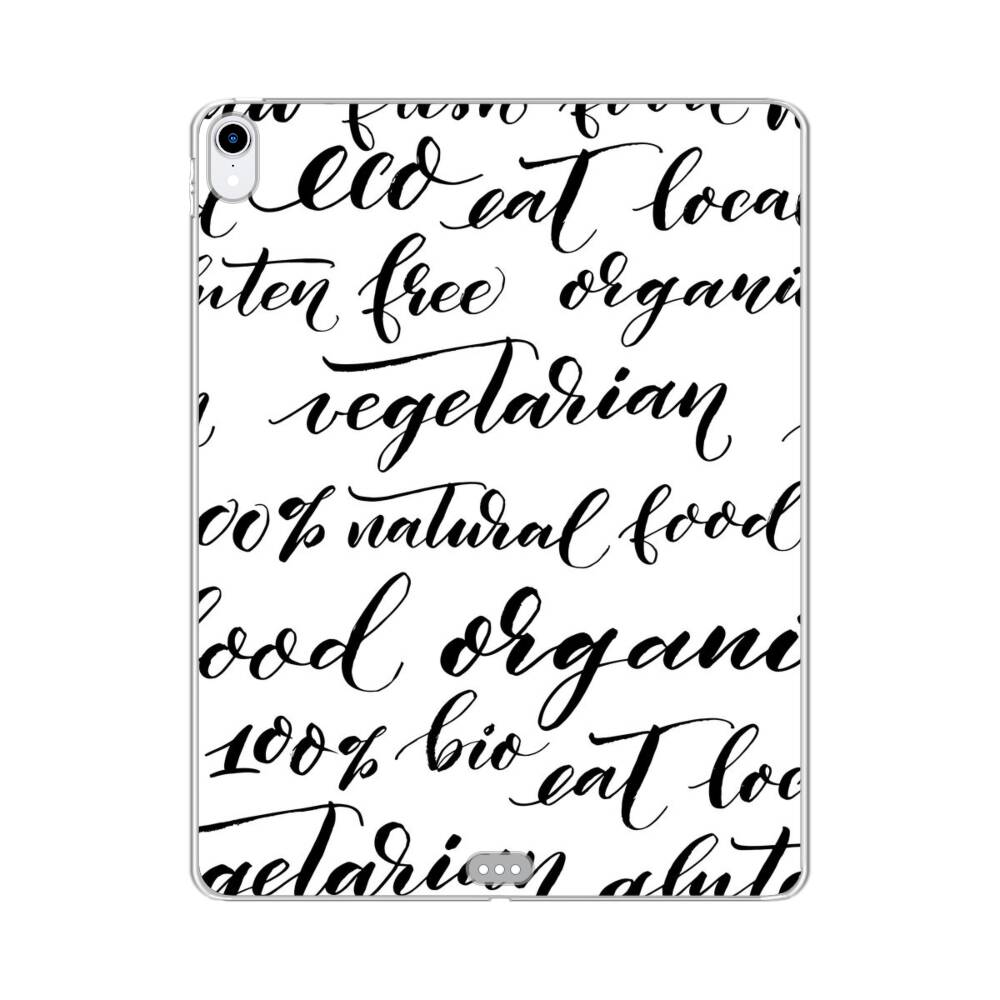 fresh food
eco eat local
gluten free organic
vegetarian
100% natural food
food organic
100% bio eat local
vegetarian gluten